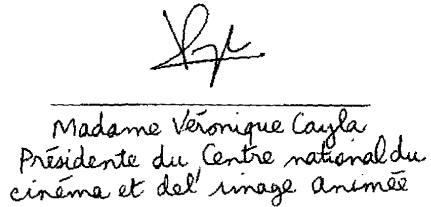 Madame Véronique Cayla
Présidente du Centre national du
cinéma et del' image animée